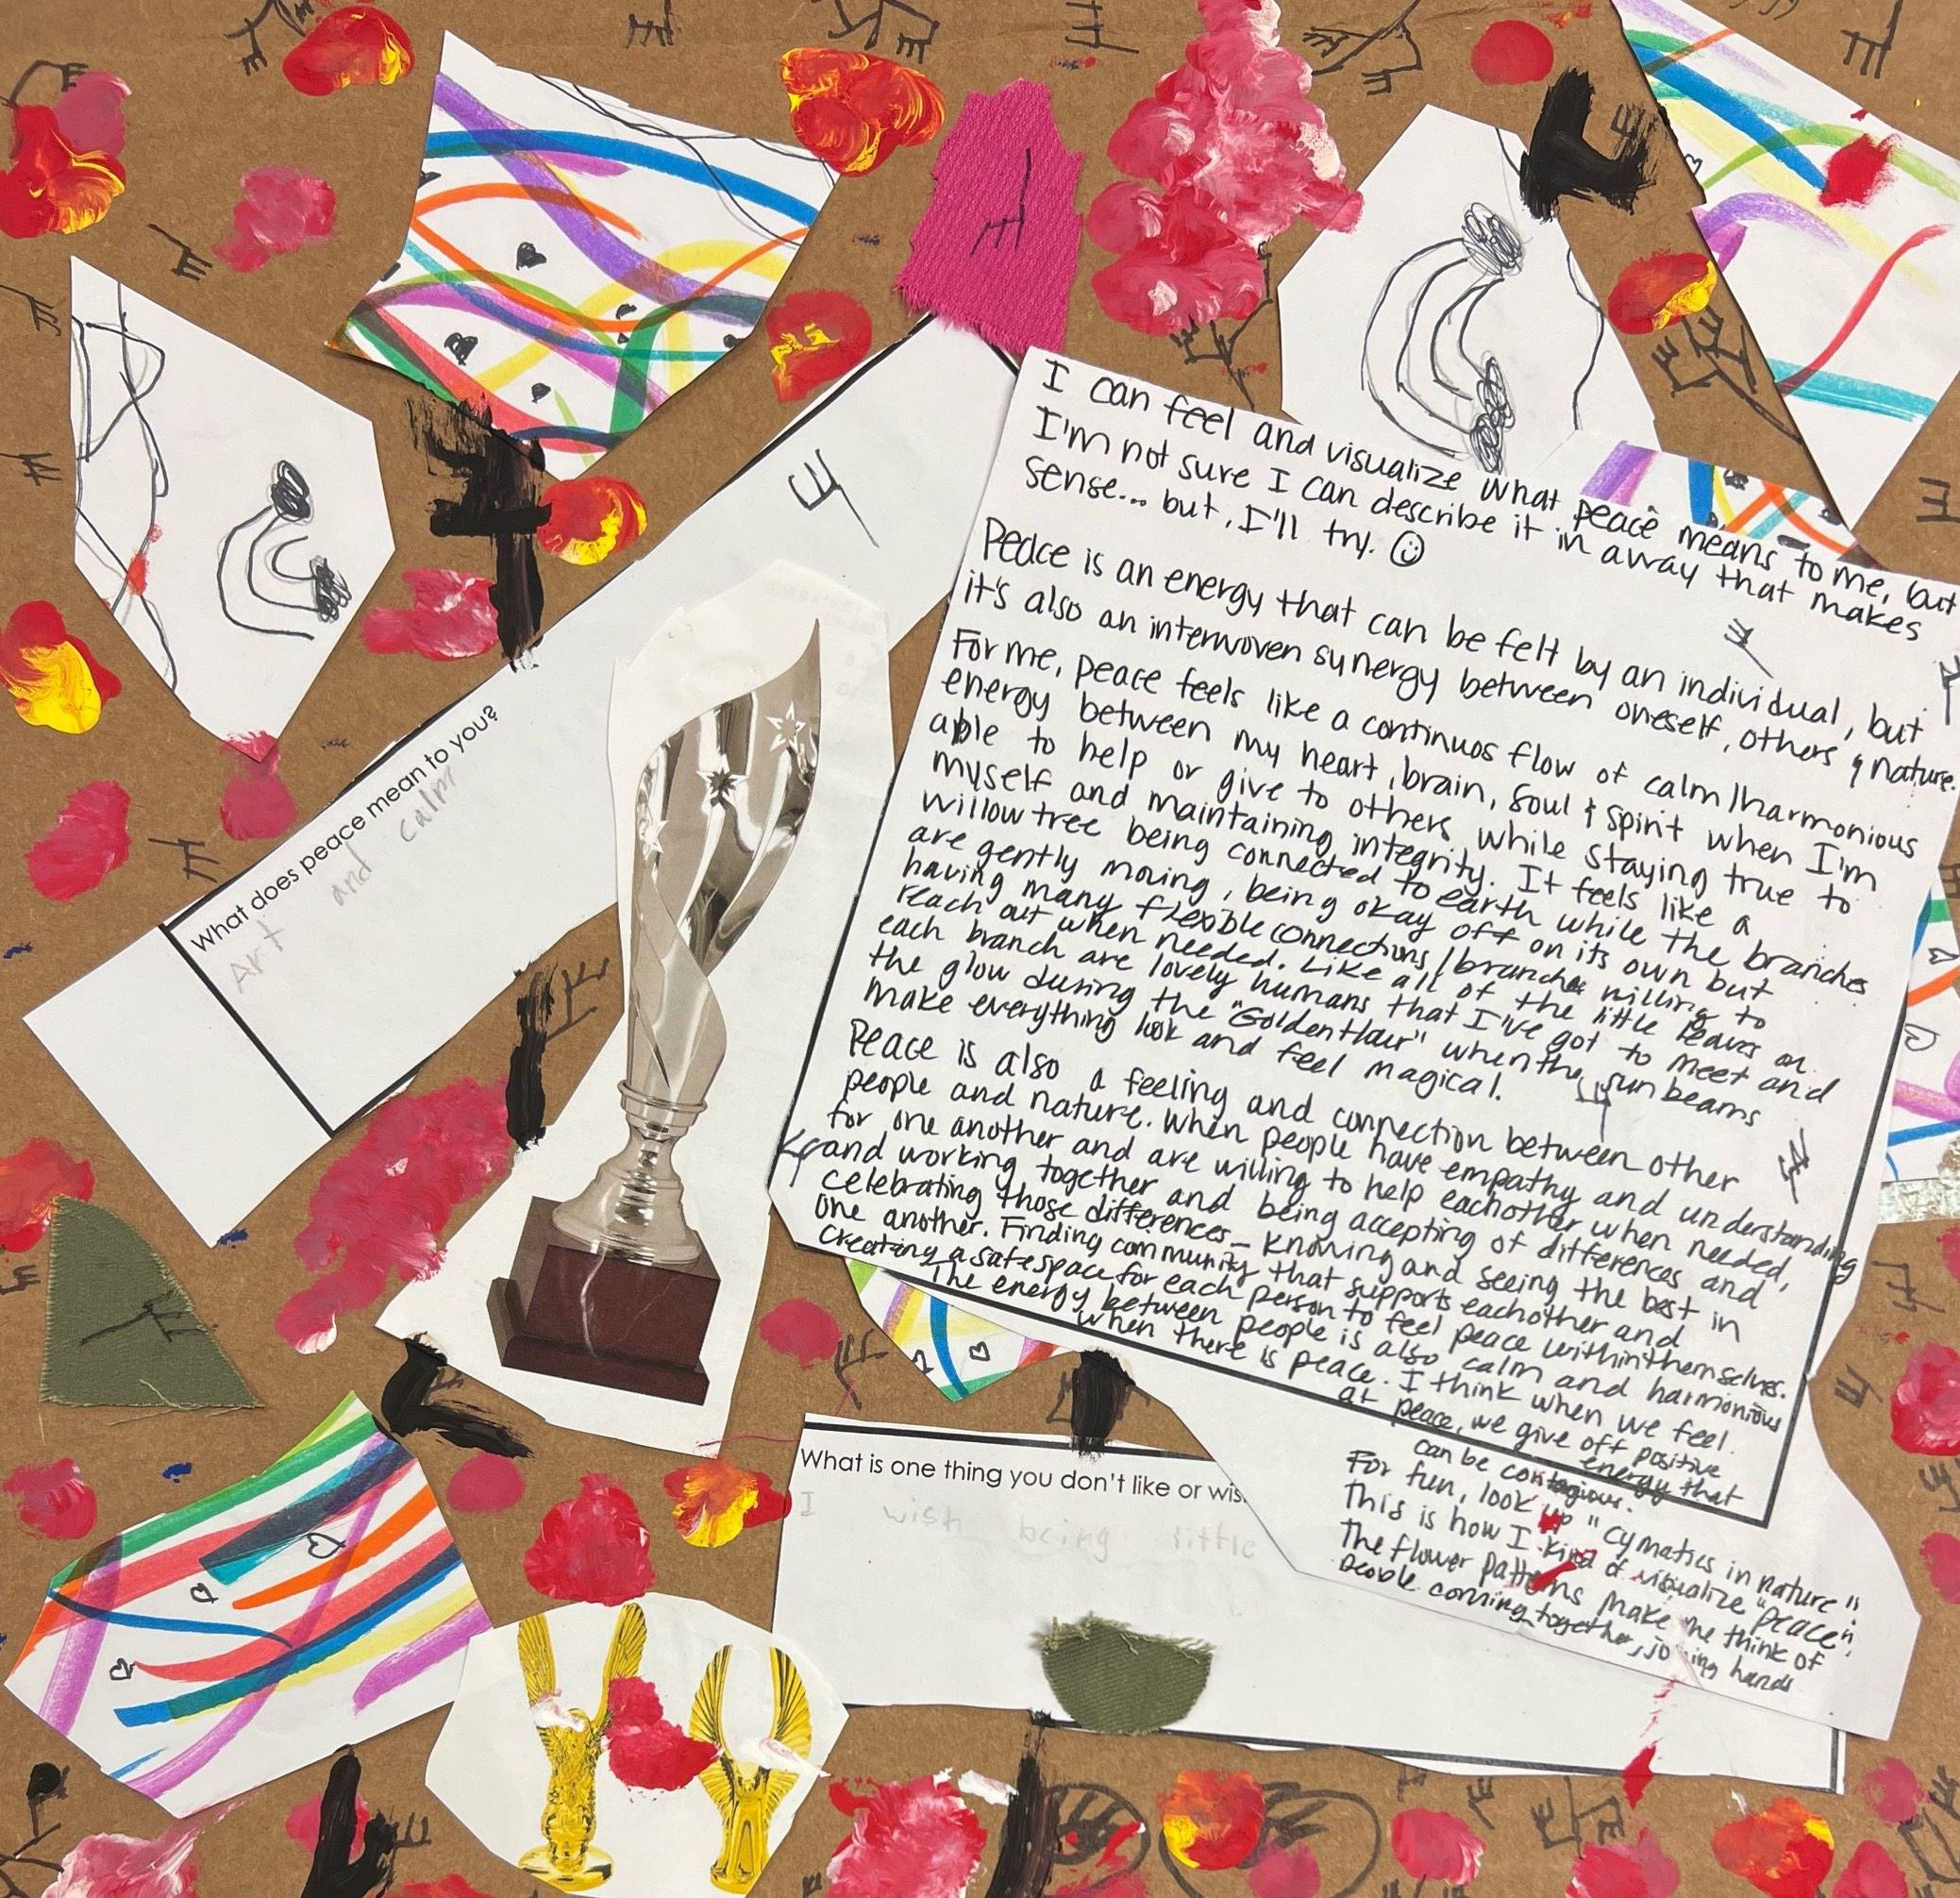 I can feel and visualize what peace means to me, but
I'm not sure I can describe it in a way that makes
sense... but, I'll try. ☺
Peace is an energy that can be felt by an individual, but
it's also an interwoven synergy between oneself, others & nature.
For me, peace feels like a continuos flow of calm/harmonious
energy between my heart, brain, soul & spirit when I'm
able to help or give to others while staying true to
myself and maintaining integrity. It feels like a
willow tree being connected to earth while the branches
are gently moving, being okay off on its own but
having many flexible connections/branches willing to
reach out when needed. Like all of the little leaves on
each branch are lovely humans that I've got to meet and
the glow during the "Golden Hour" when the sun beams
make everything look and feel magical.
Peace is also a feeling and connection between other
people and nature. When people have empathy and understanding
for one another and are willing to help eachother when needed,
and working together and being accepting of differences and
celebrating those differences - knowing and seeing the best in
one another. Finding community that supports eachother and
creating a safe space for each person to feel peace within themselves.
The energy between people is also calm and harmonious
when there is peace. I think when we feel
at peace, we give off positive
energy that
can be contagious.
For fun, look up "cymatics in nature"
This is how I kind of visualize "peace".
The flower patterns make me think of
people coming together, joining hands
What does peace mean to you?
Art and calm
What is one thing you don't like or wis
I wish being little